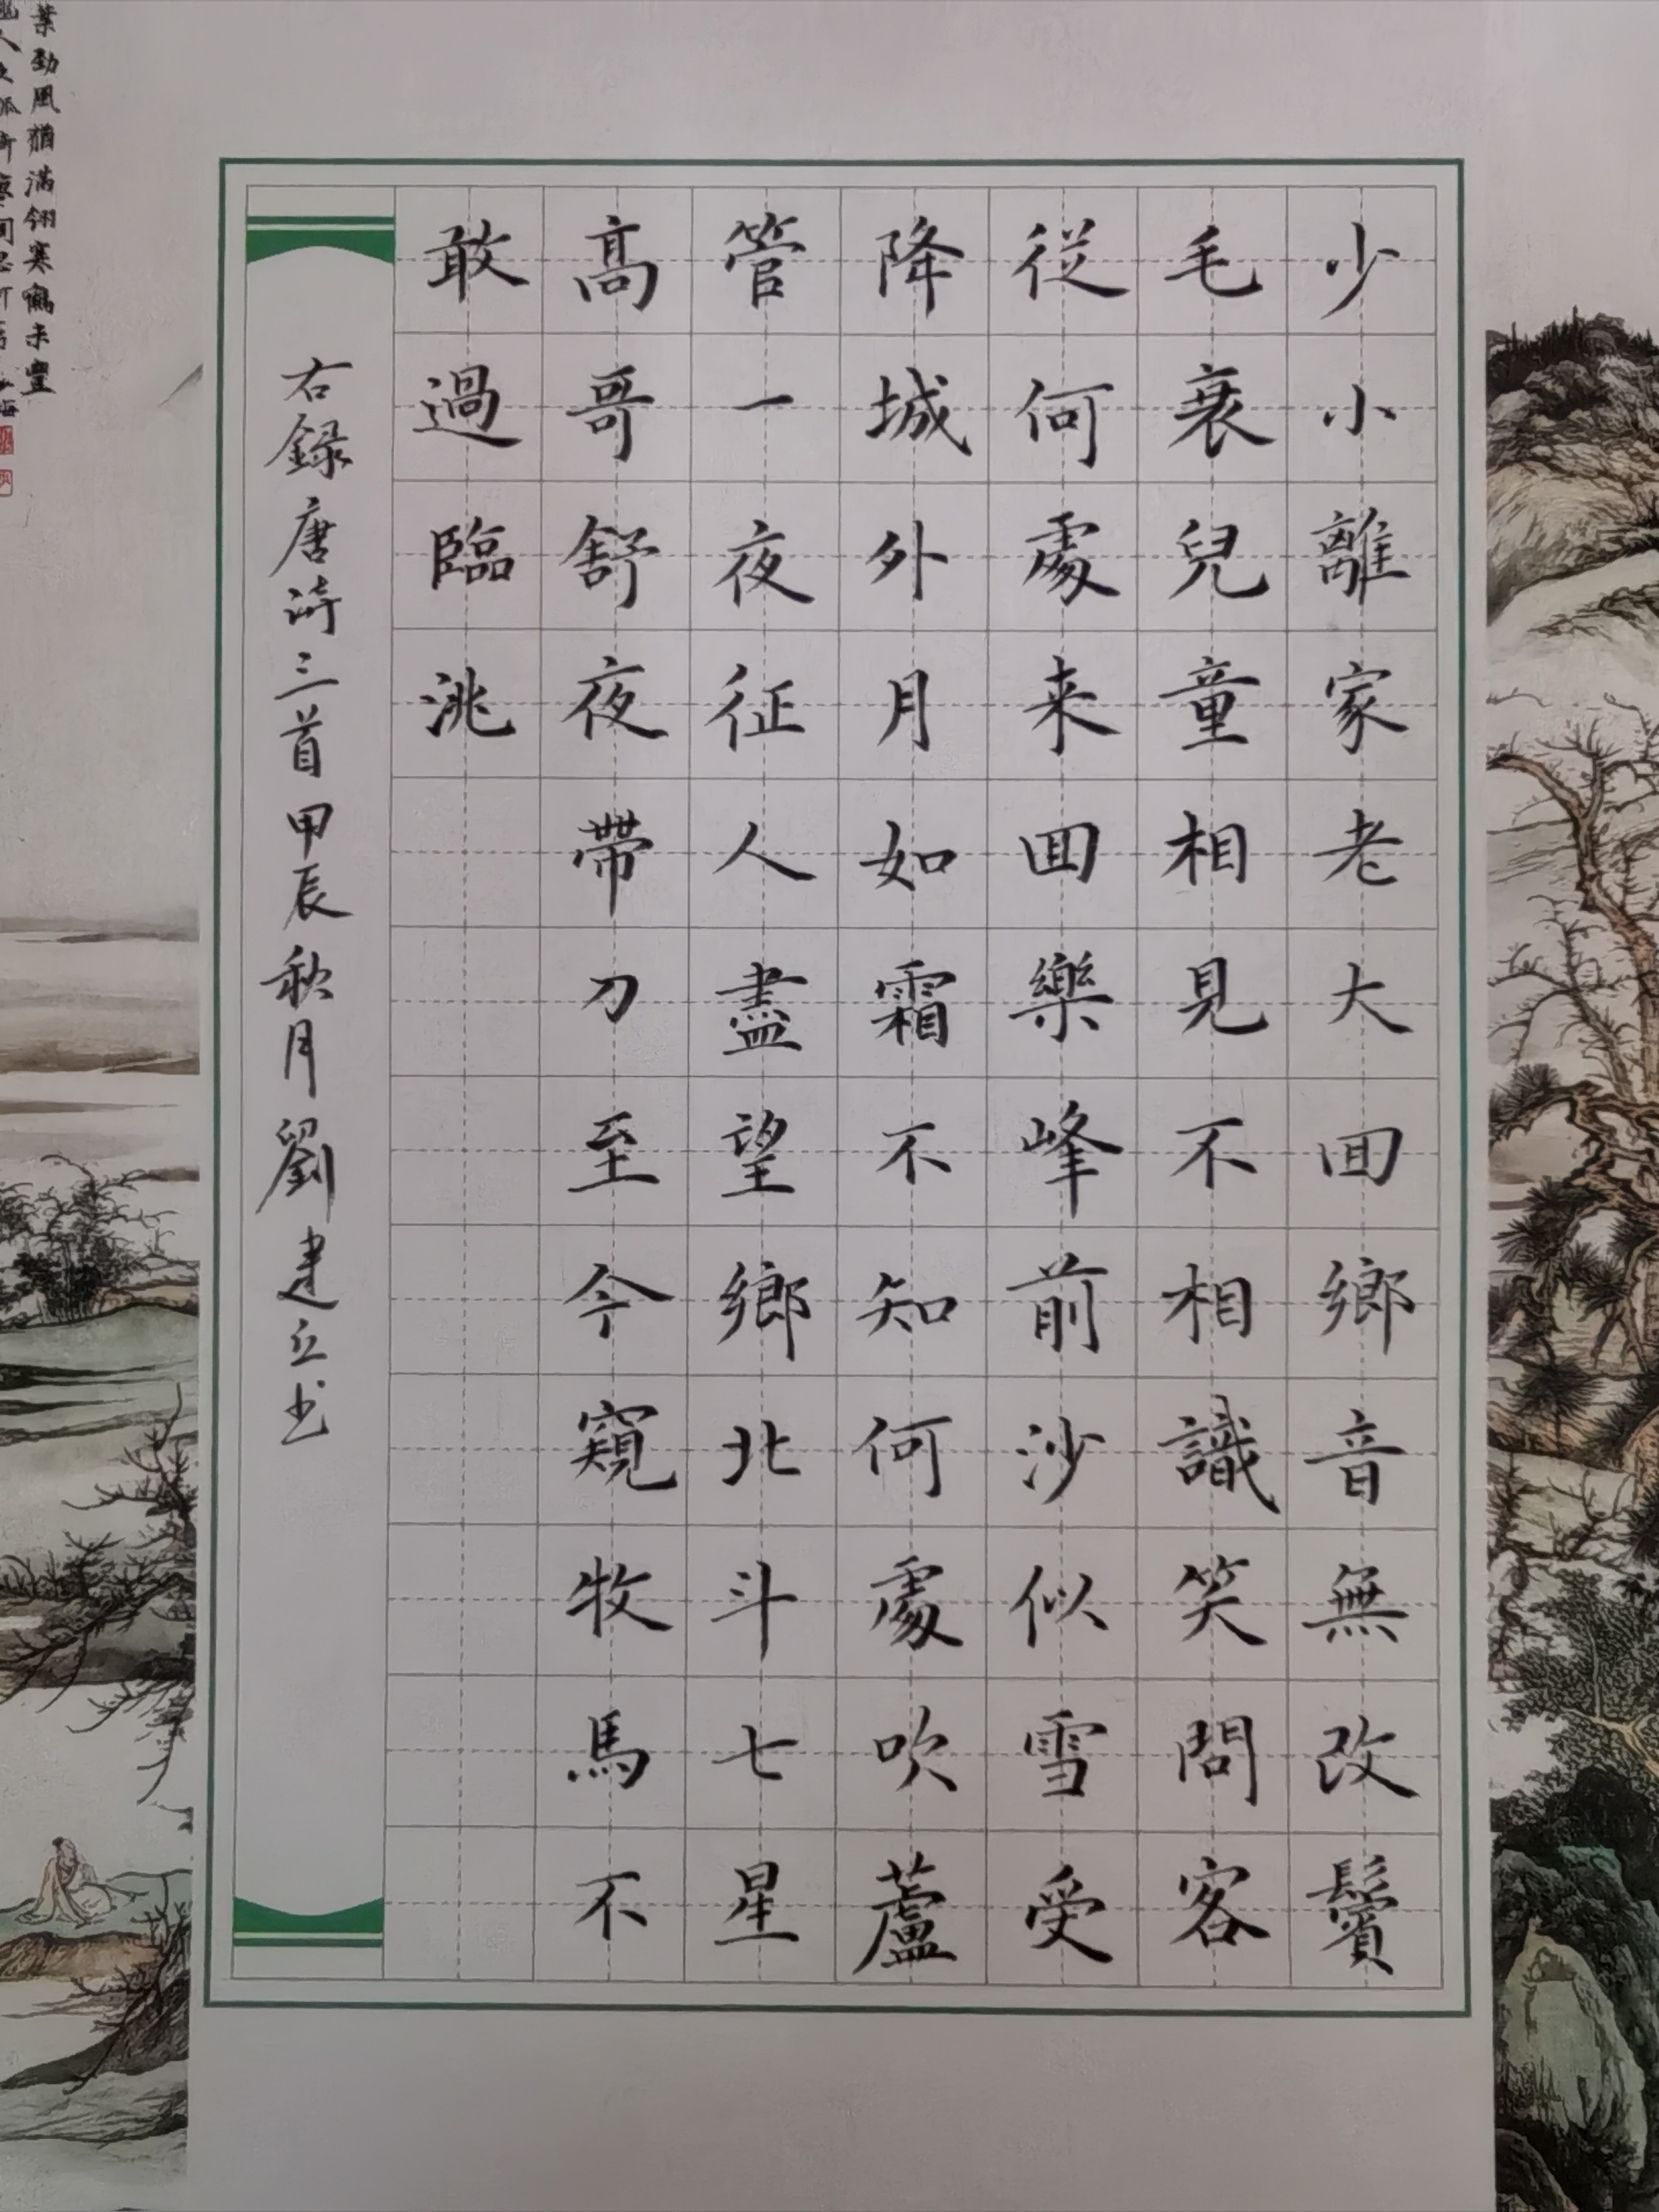 少小離家老大囬鄉音無改鬢
毛衰兒童相見不相識笑問客
從何處来囬樂峰前沙似雪受
降城外月如霜不知何處吹蘆
管一夜征人盡望鄉北斗七星
高哥舒夜帶刀至今窺牧馬不
敢過臨洮
右録唐詩三首甲辰秋月劉建立书
葉勁風猶满翎寒鳴未豐